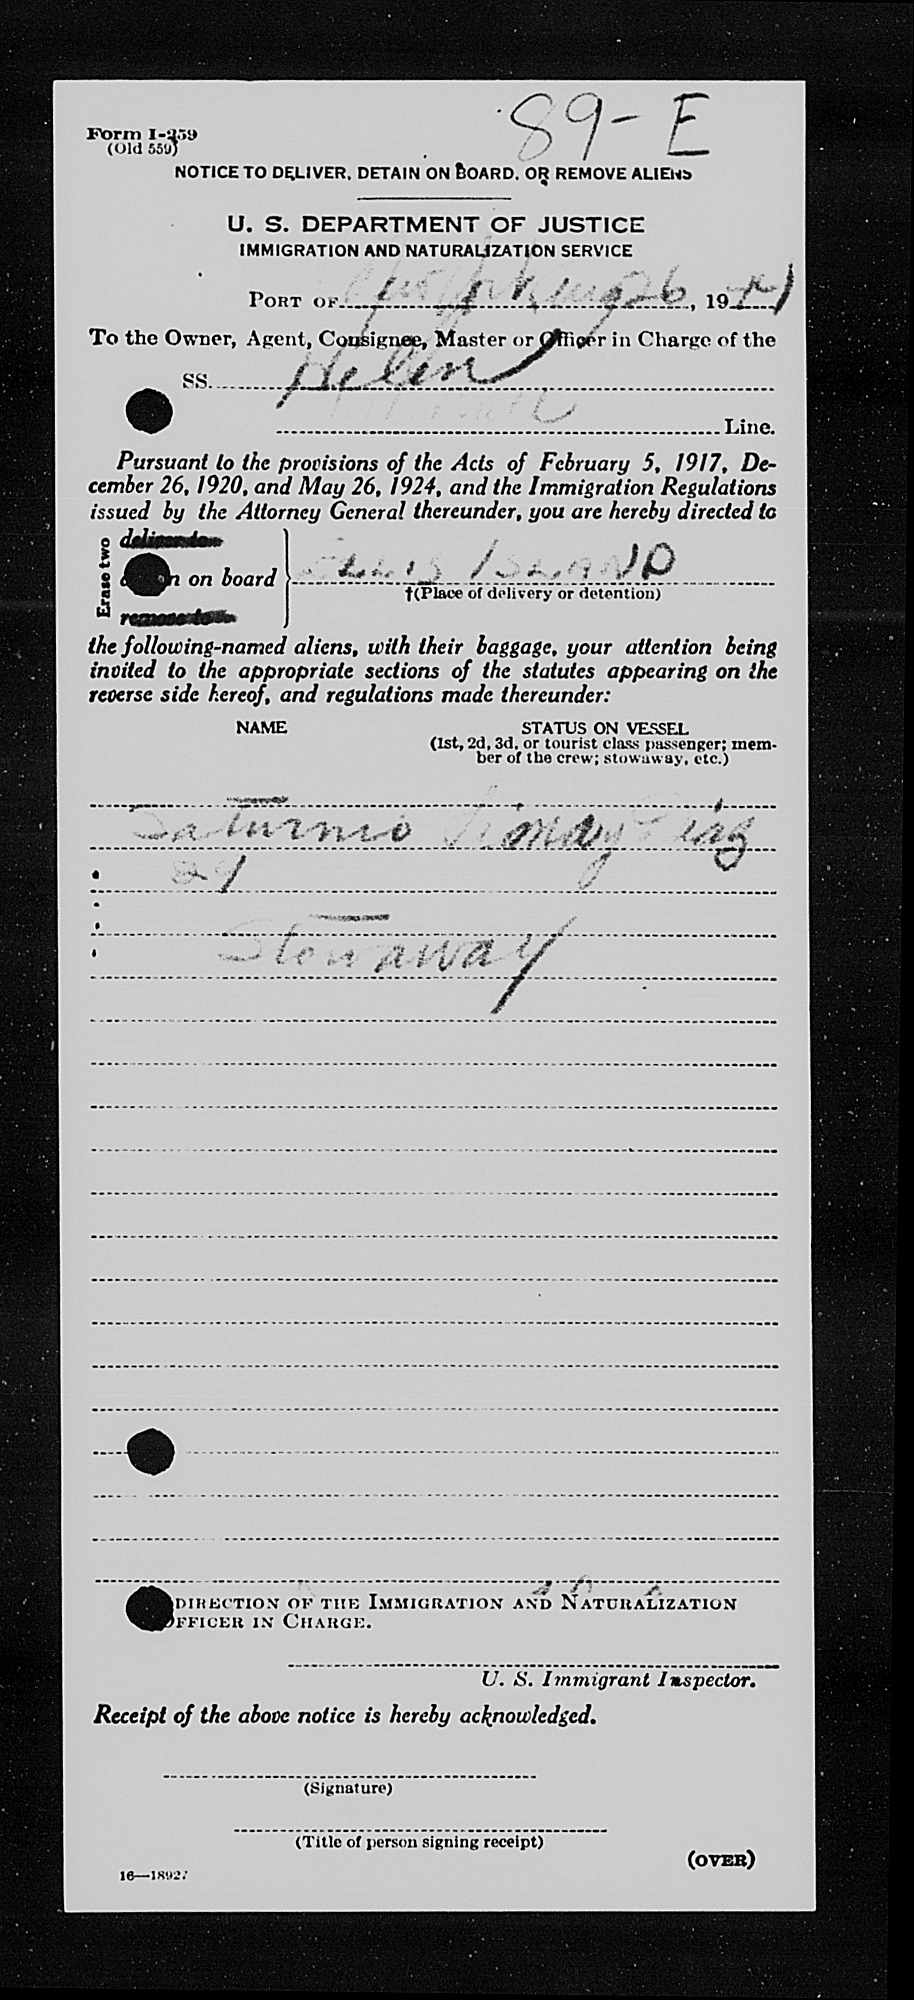 89-E
Form I-259
(Old 559)
NOTICE TO DELIVER, DETAIN ON BOARD, OR REMOVE ALIENS
U. S. DEPARTMENT OF JUSTICE
IMMIGRATION AND NATURALIZATION SERVICE
PORT OF New York Aug 26, 1941
To the Owner, Agent, Consignee, Master or Officer in Charge of the
SS. Helen
Line.
Pursuant to the provisions of the Acts of February 5, 1917, De-
cember 26, 1920, and May 26, 1924, and the Immigration Regulations
issued by the Attorney General thereunder, you are hereby directed to
Erase two
deliver to
on board ELLIS ISLAND
†(Place of delivery or detention)
remove to
the following-named aliens, with their baggage, your attention being
invited to the appropriate sections of the statutes appearing on the
reverse side hereof, and regulations made thereunder:
NAME STATUS ON VESSEL
(1st, 2d, 3d, or tourist class passenger; mem-
ber of the crew; stowaway, etc.)
Saturnino
Stowaway
DIRECTION OF THE IMMIGRATION AND NATURALIZATION
OFFICER IN CHARGE.
U. S. Immigrant Inspector.
Receipt of the above notice is hereby acknowledged.
(Signature)
(Title of person signing receipt)
(OVER)
16—18927